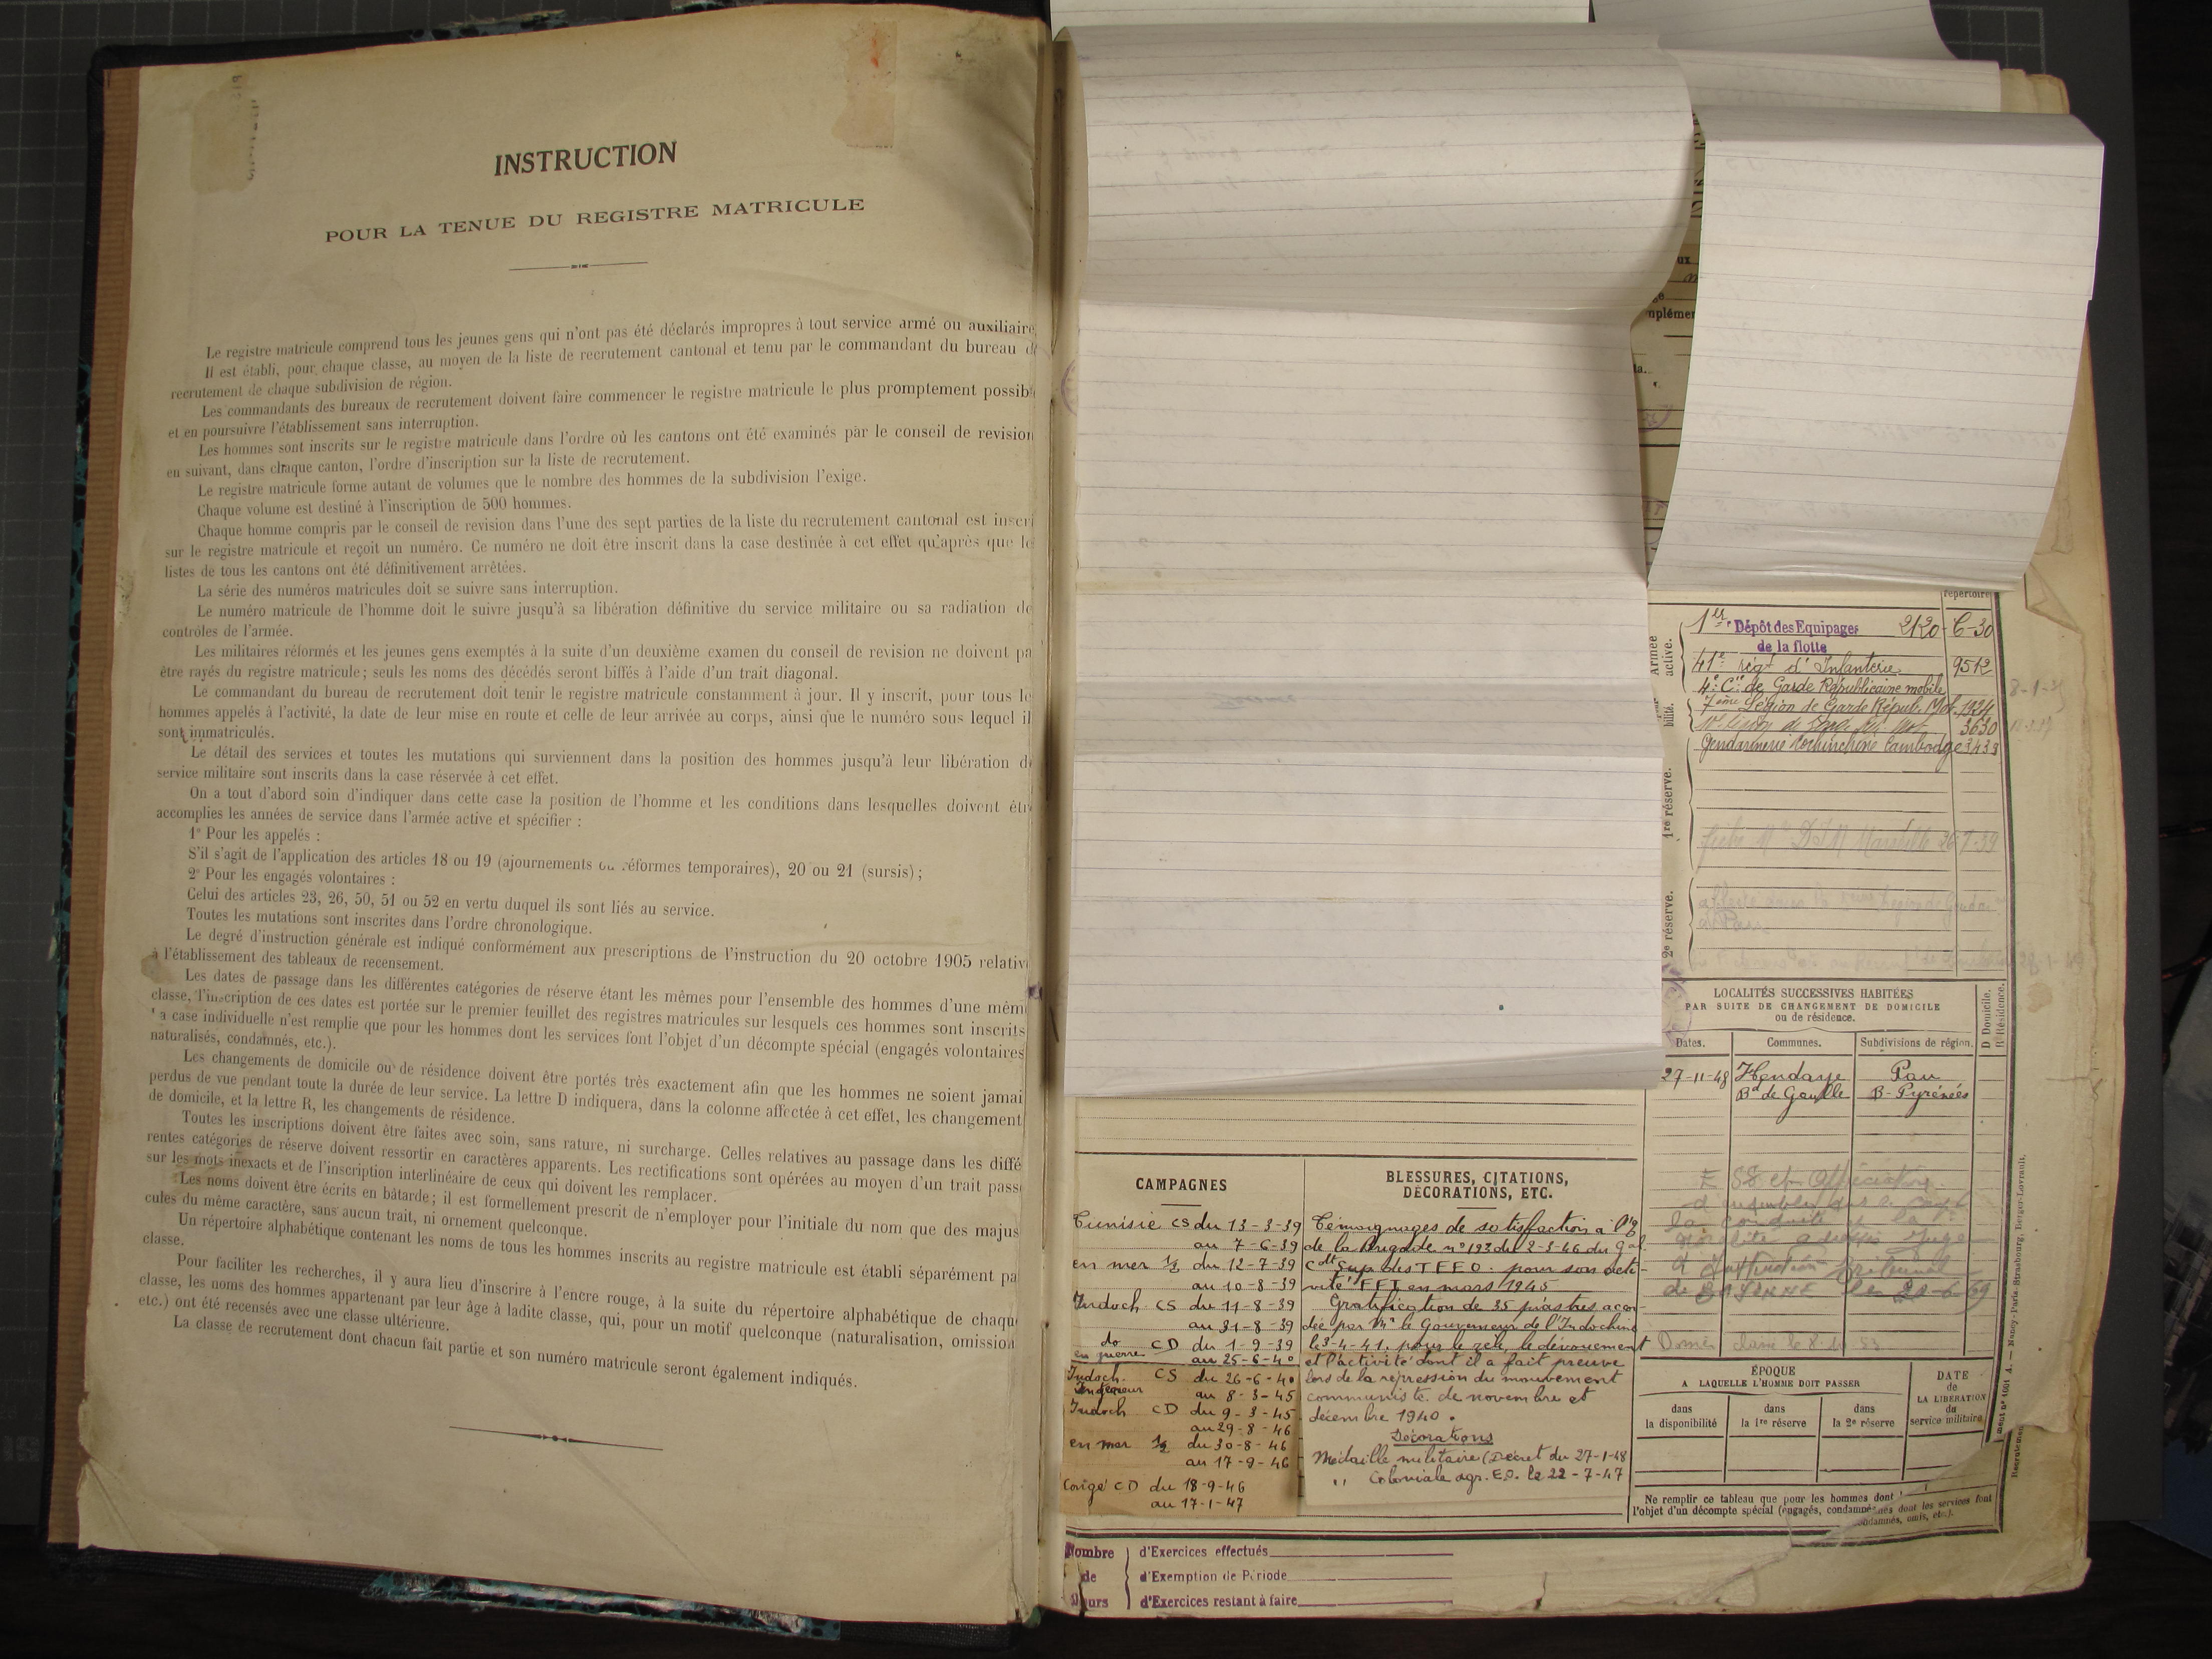 INSTRUCTION
POUR LA TENUE DU REGISTRE MATRICULE
Le registre matricule comprend tous les jeunes gens qui n'ont pas été déclarés impropres à tout service armé ou auxiliaire
Il est établi, pour chaque classe, au moyen de la liste de recrutement cantonal et tenu par le commandant du bureau d
recrutement de chaque subdivision de région.
Les commandants des bureaux de recrutement doivent faire commencer le registre matricule le plus promptement possib
et en poursuivre l'établissement sans interruption.
Les hommes sont inscrits sur le registre matricule dans l'ordre où les cantons ont été examinés par le conseil de revision
en suivant, dans chaque canton, l'ordre d'inscription sur la liste de recrutement.
Le registre matricule forme autant de volumes que le nombre des hommes de la subdivision l'exige.
Chaque volume est destiné à l'inscription de 500 hommes.
Chaque homme compris par le conseil de revision dans l'une des sept parties de la liste du recrutement cantonal est inscri
sur le registre matricule et reçoit un numéro. Ce numéro ne doit être inscrit dans la case destinée à cet effet qu'après que le
listes de tous les cantons ont été définitivement arrêtées.
La série des numéros matricules doit se suivre sans interruption.
Le numéro matricule de l'homme doit le suivre jusqu'à sa libération définitive du service militaire ou sa radiation de
contrôles de l'armée.
Les militaires réformés et les jeunes gens exemptés à la suite d'un deuxième examen du conseil de revision ne doivent pa
être rayés du registre matricule; seuls les noms des décédés seront biffés à l'aide d'un trait diagonal.
Le commandant du bureau de recrutement doit tenir le registre matricule constamment à jour. Il y inscrit, pour tous le
hommes appelés à l'activité, la date de leur mise en route et celle de leur arrivée au corps, ainsi que le numéro sous lequel il
sont immatriculés.
Le détail des services et toutes les mutations qui surviennent dans la position des hommes jusqu'à leur libération d
service militaire sont inscrits dans la case réservée à cet effet.
On a tout d'abord soin d'indiquer dans cette case la position de l'homme et les conditions dans lesquelles doivent êtr
accomplies les années de service dans l'armée active et spécifier :
1° Pour les appelés :
S'il s'agit de l'application des articles 18 ou 19 (ajournements ou réformes temporaires), 20 ou 21 (sursis);
2° Pour les engagés volontaires :
Celui des articles 23, 26, 50, 51 ou 52 en vertu duquel ils sont liés au service.
Toutes les mutations sont inscrites dans l'ordre chronologique.
Le degré d'instruction générale est indiqué conformément aux prescriptions de l'instruction du 20 octobre 1905 relativ
à l'établissement des tableaux de recensement.
Les dates de passage dans les différentes catégories de réserve étant les mêmes pour l'ensemble des hommes d'une mêm
classe, l'inscription de ces dates est portée sur le premier feuillet des registres matricules sur lesquels ces hommes sont inscrits
a case individuelle n'est remplie que pour les hommes dont les services font l'objet d'un décompte spécial (engagés volontaires
naturalisés, condamnés, etc.).
Les changements de domicile ou de résidence doivent être portés très exactement afin que les hommes ne soient jamai
perdus de vue pendant toute la durée de leur service. La lettre D indiquera, dans la colonne affectée à cet effet, les changement
de domicile, et la lettre R, les changements de résidence.
Toutes les inscriptions doivent être faites avec soin, sans rature, ni surcharge. Celles relatives au passage dans les diffé
rentes catégories de réserve doivent ressortir en caractères apparents. Les rectifications sont opérées au moyen d'un trait pass
sur les mots inexacts et de l'inscription interlinéaire de ceux qui doivent les remplacer.
Les noms doivent être écrits en bâtarde; il est formellement prescrit de n'employer pour l'initiale du nom que des majus
cules du même caractère, sans aucun trait, ni ornement quelconque.
Un répertoire alphabétique contenant les noms de tous les hommes inscrits au registre matricule est établi séparément pa
classe.
Pour faciliter les recherches, il y aura lieu d'inscrire à l'encre rouge, à la suite du répertoire alphabétique de chaqu
classe, les noms des hommes appartenant par leur âge à ladite classe, qui, pour un motif quelconque (naturalisation, omission
etc.) ont été recensés avec une classe ultérieure.
La classe de recrutement dont chacun fait partie et son numéro matricule seront également indiqués.
répertoire
Armée active.
1er Dépôt des Equipages 2120-C-30
de la flotte
41e régt d'Infanterie 9512
4e Cie de Garde Républicaine mobile
7ème Légion de Garde Républ. Mob. 1924
3630
Gendarmerie Cochinchine Cambodge 3438
1re réserve.
Marseille 26-7-39
2e réserve.
LOCALITÉS SUCCESSIVES HABITÉES
PAR SUITE DE CHANGEMENT DE DOMICILE
ou de résidence.
D Domicile.
R Résidence.
Dates. Communes. Subdivisions de région.
27-11-48 Hendaye Pau
Bd de Gaulle B-Pyrénées
CAMPAGNES
Tunisie CS du 13-3-39
au 7-6-39
en mer ½ du 12-7-39
au 10-8-39
Indoch CS du 11-8-39
au 31-8-39
do CD du 1-9-39
en guerre au 25-6-40
Indoch. CS du 26-6-40
au 8-3-45
Indoch CD du 9-3-45
au 29-8-46
en mer ½ du 30-8-46
au 17-9-46
Congé CD du 18-9-46
au 17-1-47
BLESSURES, CITATIONS,
DÉCORATIONS, ETC.
Témoignages de satisfaction à l'O
de la Brigade n° 193 du 2-3-46 du Gal
Cdt Sup des T F E O. pour son acti-
vité FFI en mars 1945
Gratification de 35 piastres accor-
dée par Mr le Gouverneur de l'Indochine
le 3-4-41 pour le zèle, le dévouement
et l'activité dont il a fait preuve
lors de la répression du mouvement
communiste de novembre et
décembre 1940.
Décorations
Médaille militaire (Décret du 27-1-48
" Coloniale agr. E.O. le 22-7-47
ÉPOQUE
A LAQUELLE L'HOMME DOIT PASSER
dans
la disponibilité
dans
la 1re réserve
dans
la 2e réserve
DATE
de
LA LIBÉRATION
du
service militaire
Ne remplir ce tableau que pour les hommes dont
l'objet d'un décompte spécial (engagés, condamnés
Nombre
de
jours
d'Exercices effectués
d'Exemption de Période
d'Exercices restant à faire
Nancy-Paris-Strasbourg, Berger-Levrault.